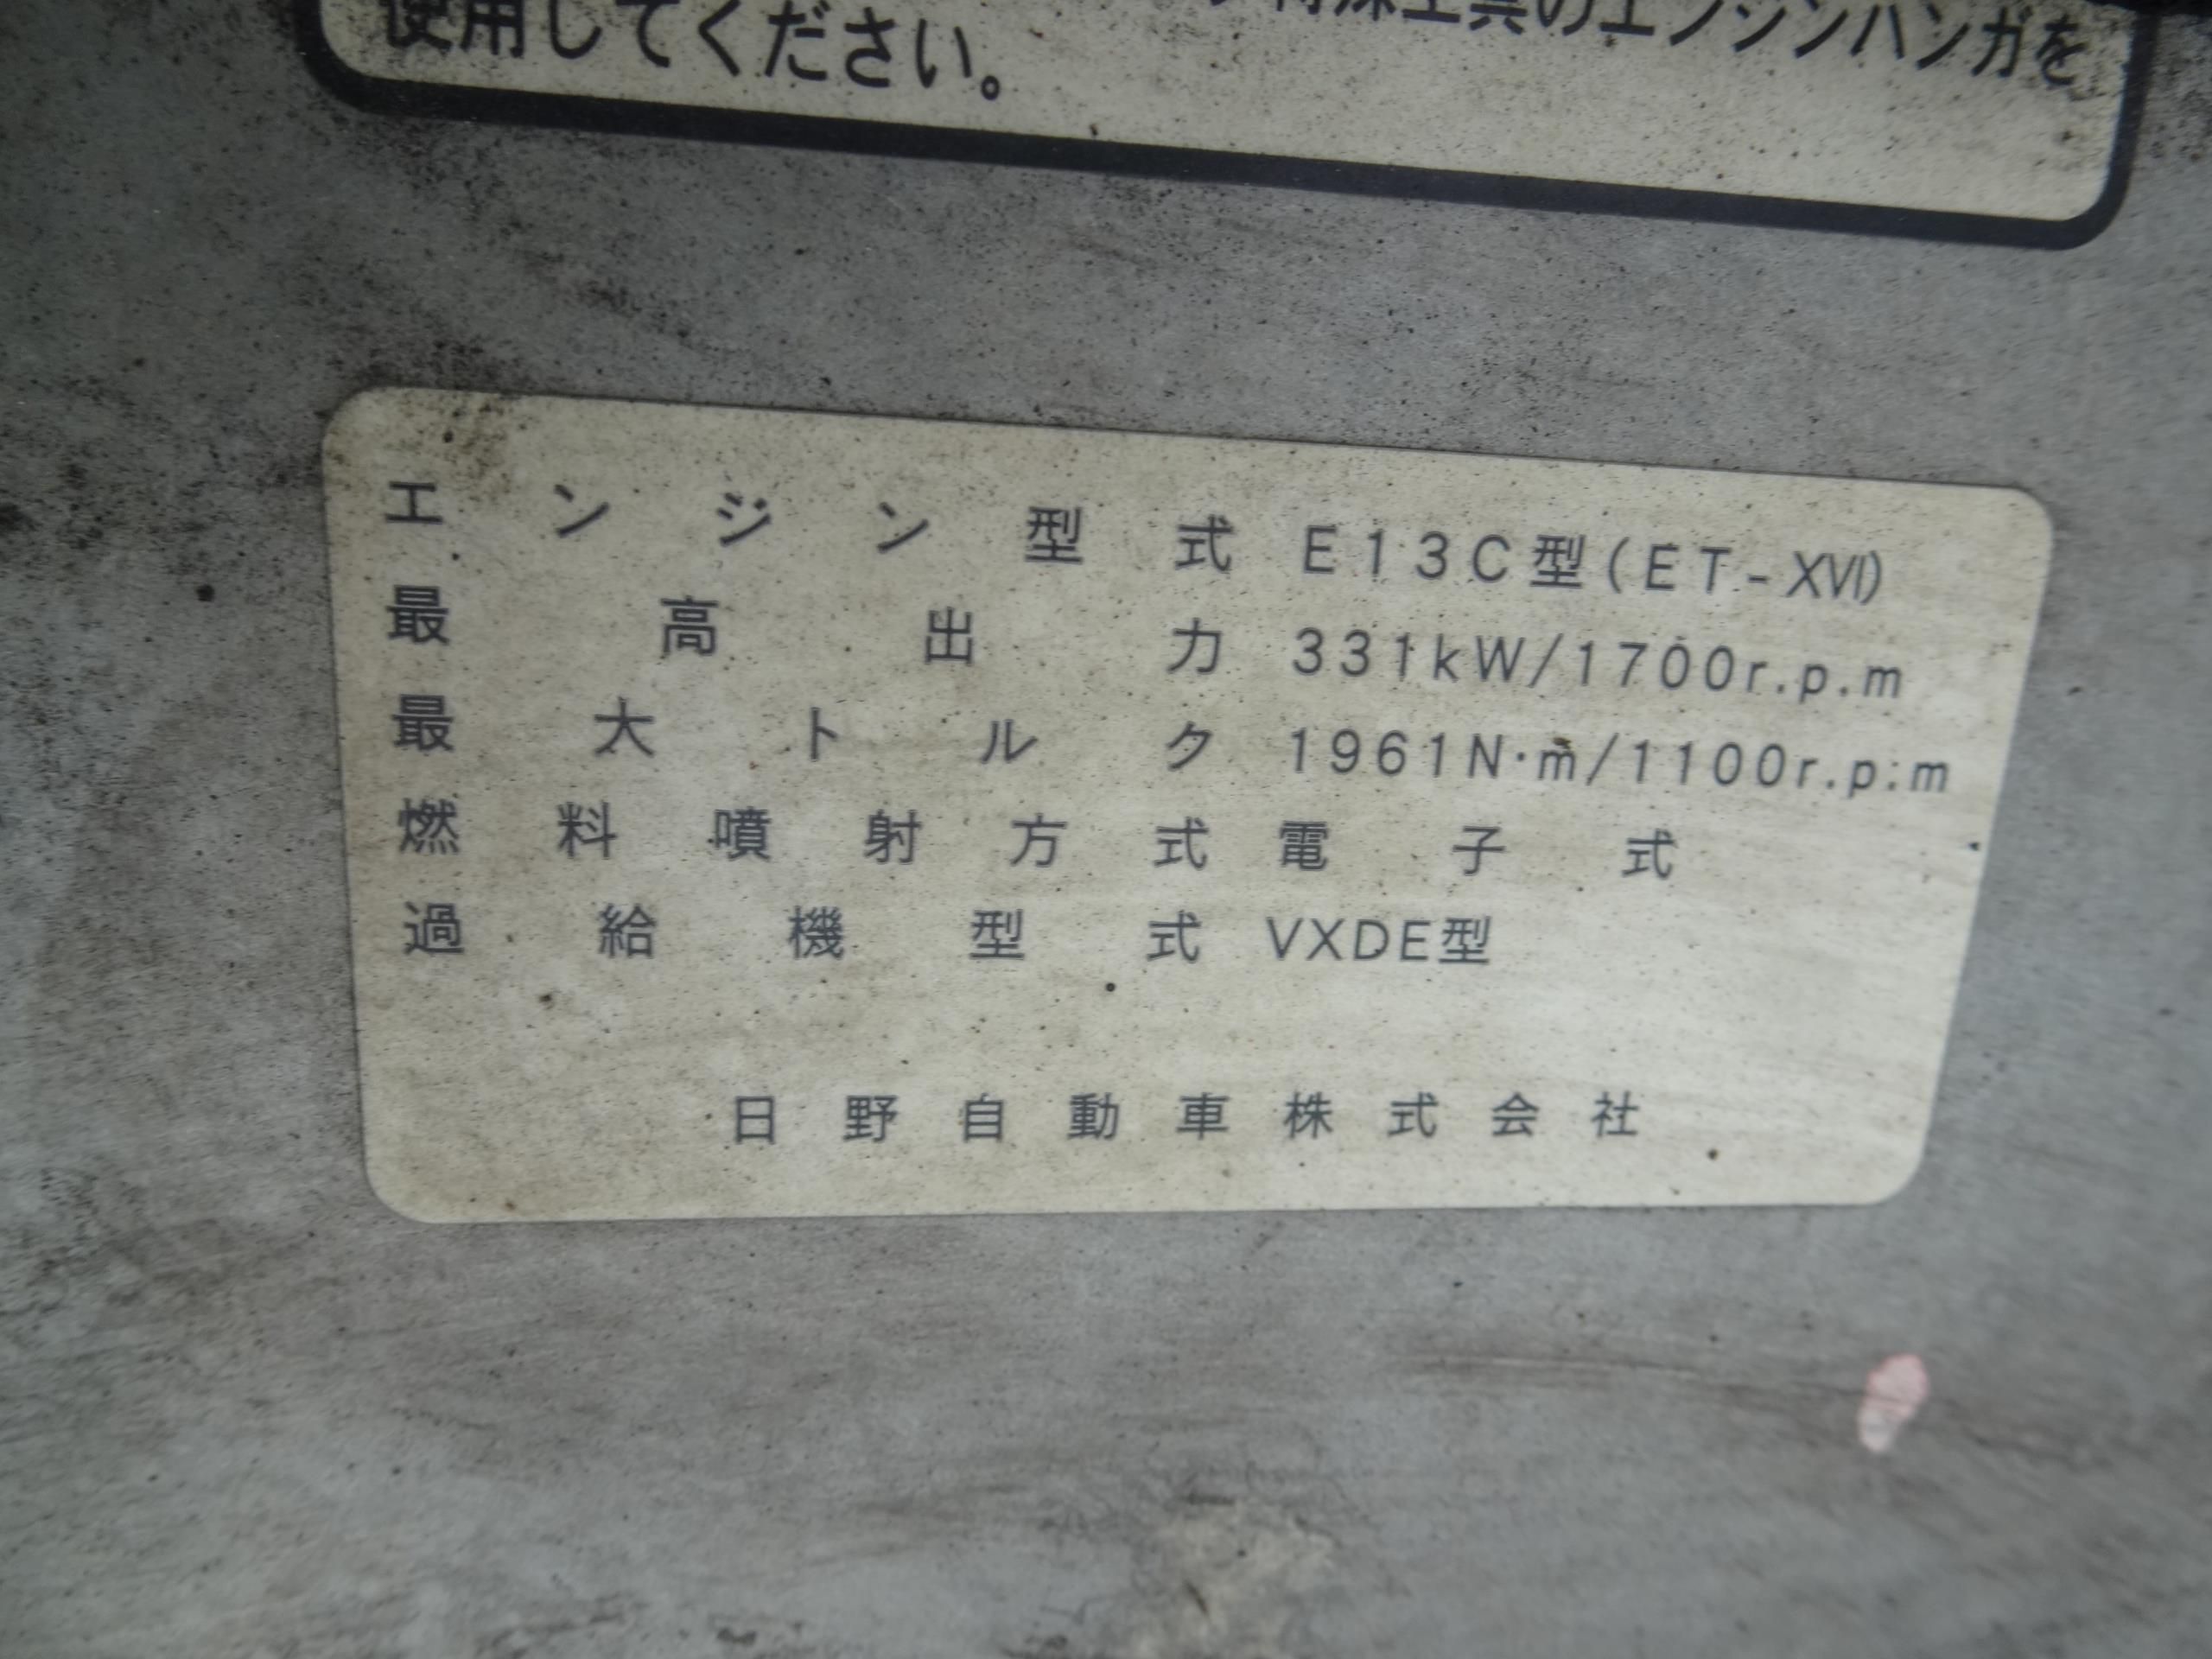 特殊工具のエンジンハンガを
使用してください。
エンジン型式 E13C型(ET-XVI)
最高出力 331kW/1700r.p.m
最大トルク 1961N·m/1100r.p.m
燃料噴射方式 電子式
過給機型式 VXDE型
日野自動車株式会社